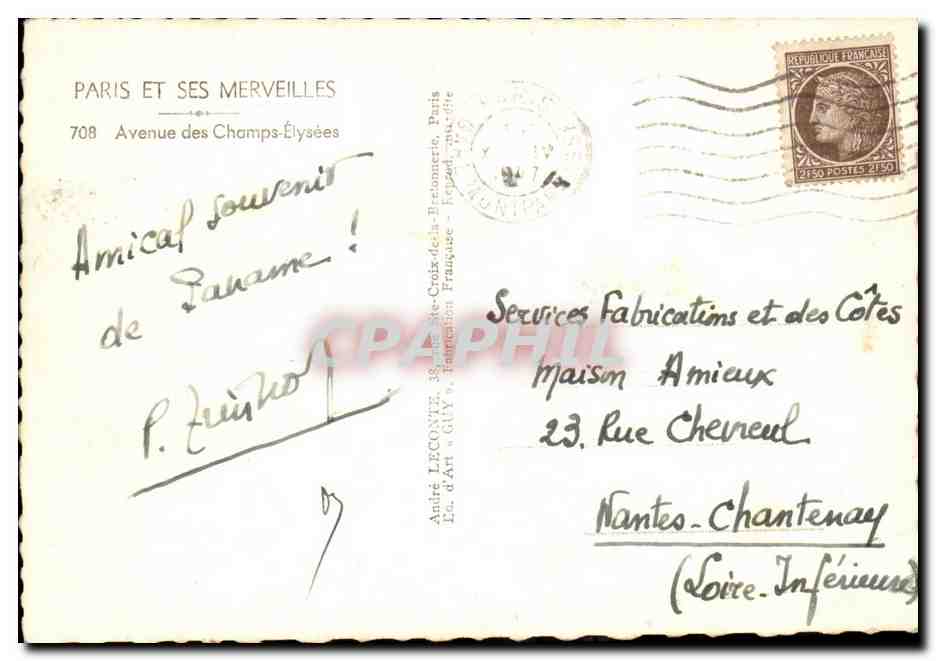 PARIS ET SES MERVEILLES
708 Avenue des Champs-Élysées
Amical souvenir
de Paname !
P.
André LECONTE, 38, rue Ste-Croix-de-la-Bretonnerie, Paris
Ed. d'Art « GUY », Fabrication Française - Reprod. interdite
PARIS
REPUBLIQUE FRANÇAISE
2F50 POSTES 2F50
CPAPHIL
Services Fabrications et des Côtes
Maison Amieux
23, Rue Chevreul
Nantes-Chantenay
(Loire-Inférieure)